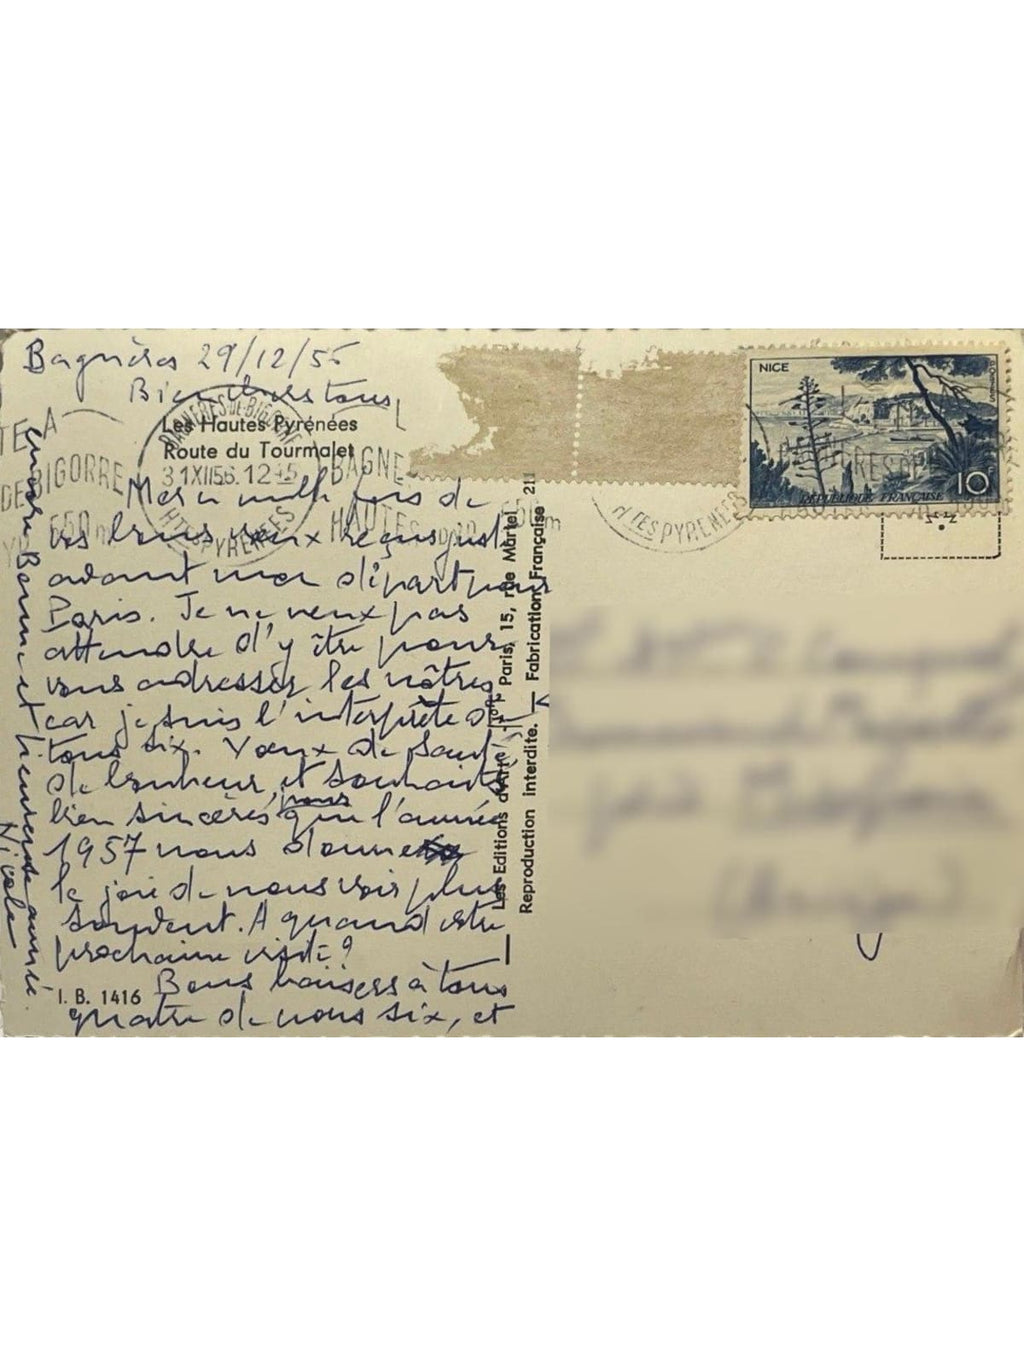 Bagnères 29/12/56
Bien chers tous,
Les Hautes Pyrénées
Route du Tourmalet
BAGNERES DE BIGORRE
31XII56. 12-45
HTES PYRENEES
Merci mille fois de
vos bons vœux reçus juste
avant mon départ pour
Paris. Je ne veux pas
attendre d'y être pour
vous adresser les nôtres
car je suis l'interprète de
tous six. Vœux de santé,
de bonheur, et souhaits
bien sincères pour que l'année
1957 nous donne
la joie de nous voir plus
souvent. A quand votre
prochaine visite ?
Bons baisers à tous
quatre de nous six, et
encore Bonne et heureuse année.
Nicole
I. B. 1416
Les Editions d'Art Paris, 15, rue Martel 211
Reproduction interdite. Fabrication Française
NICE
RÉPUBLIQUE FRANÇAISE
10F